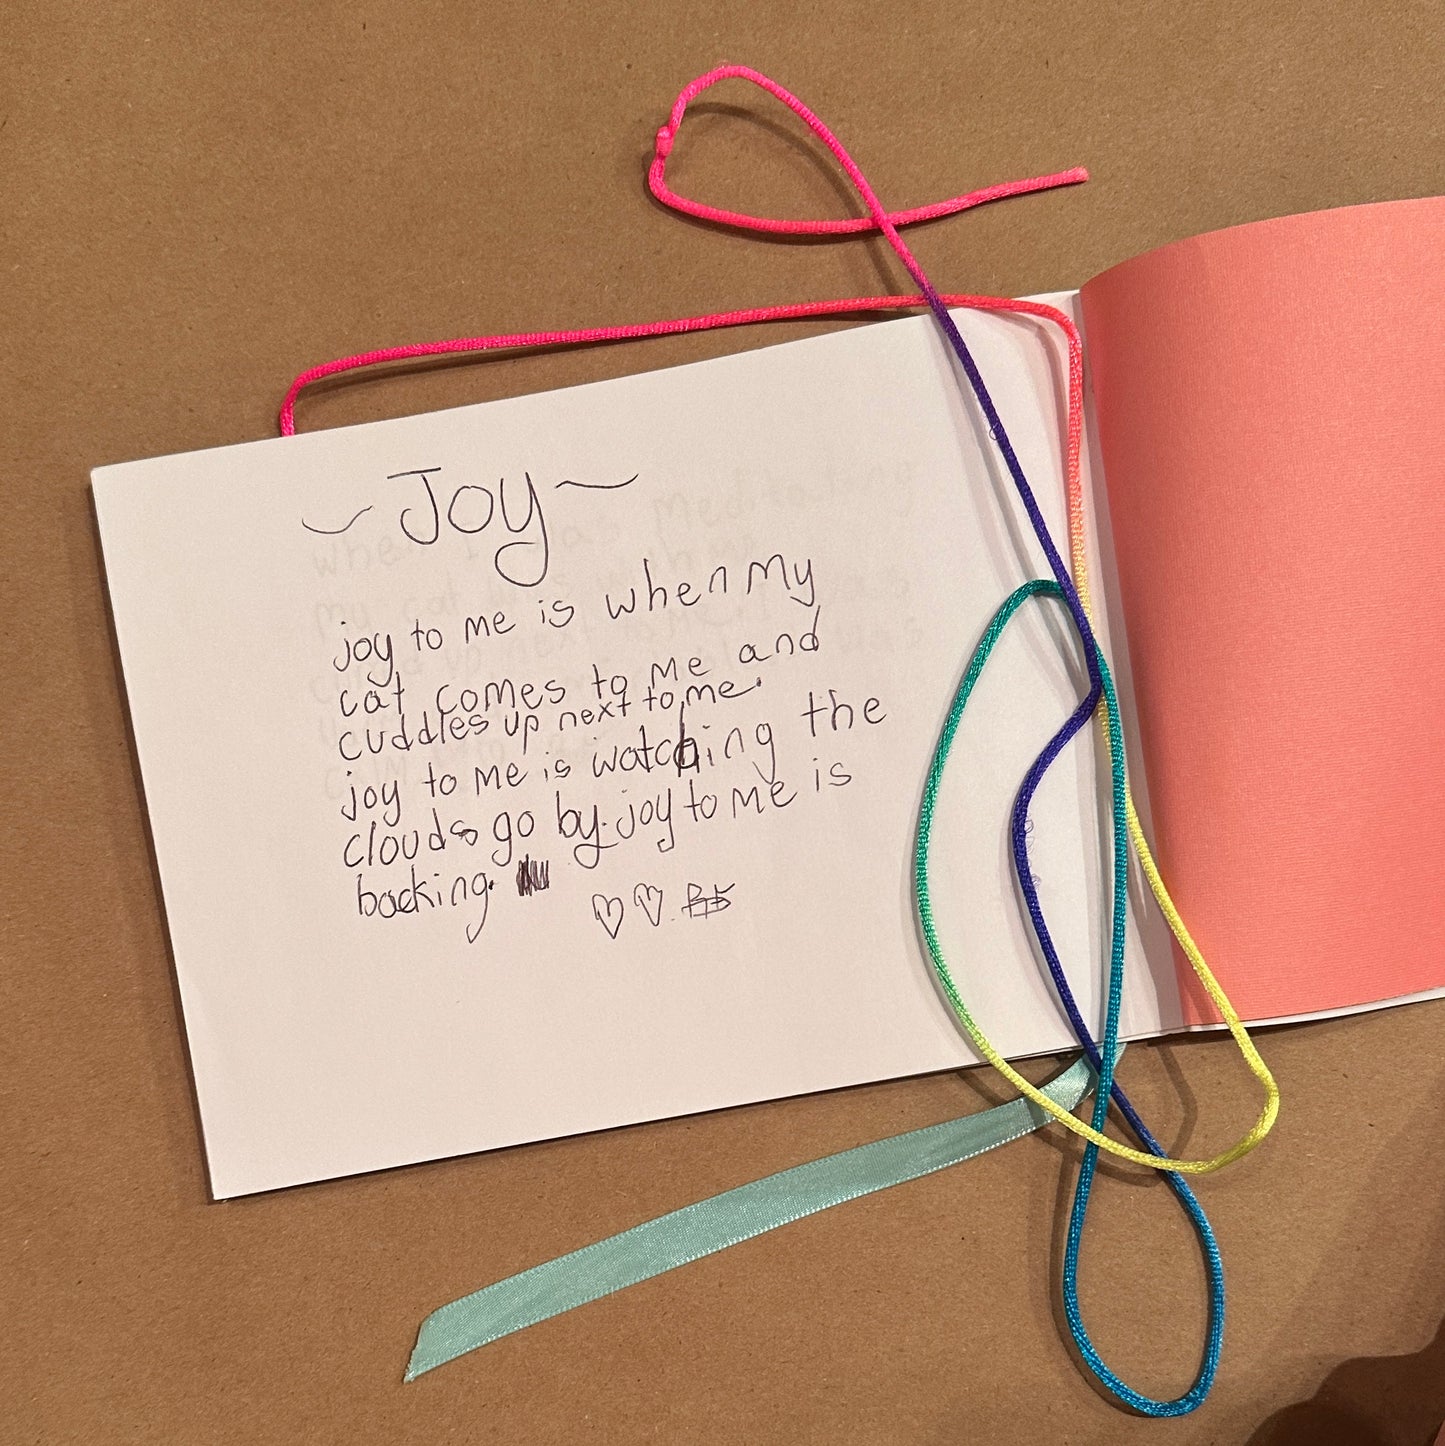 ~Joy~
joy to me is when my
cat comes to me and
cuddles up next to me.
joy to me is watching the
clouds go by. joy to me is
backing.